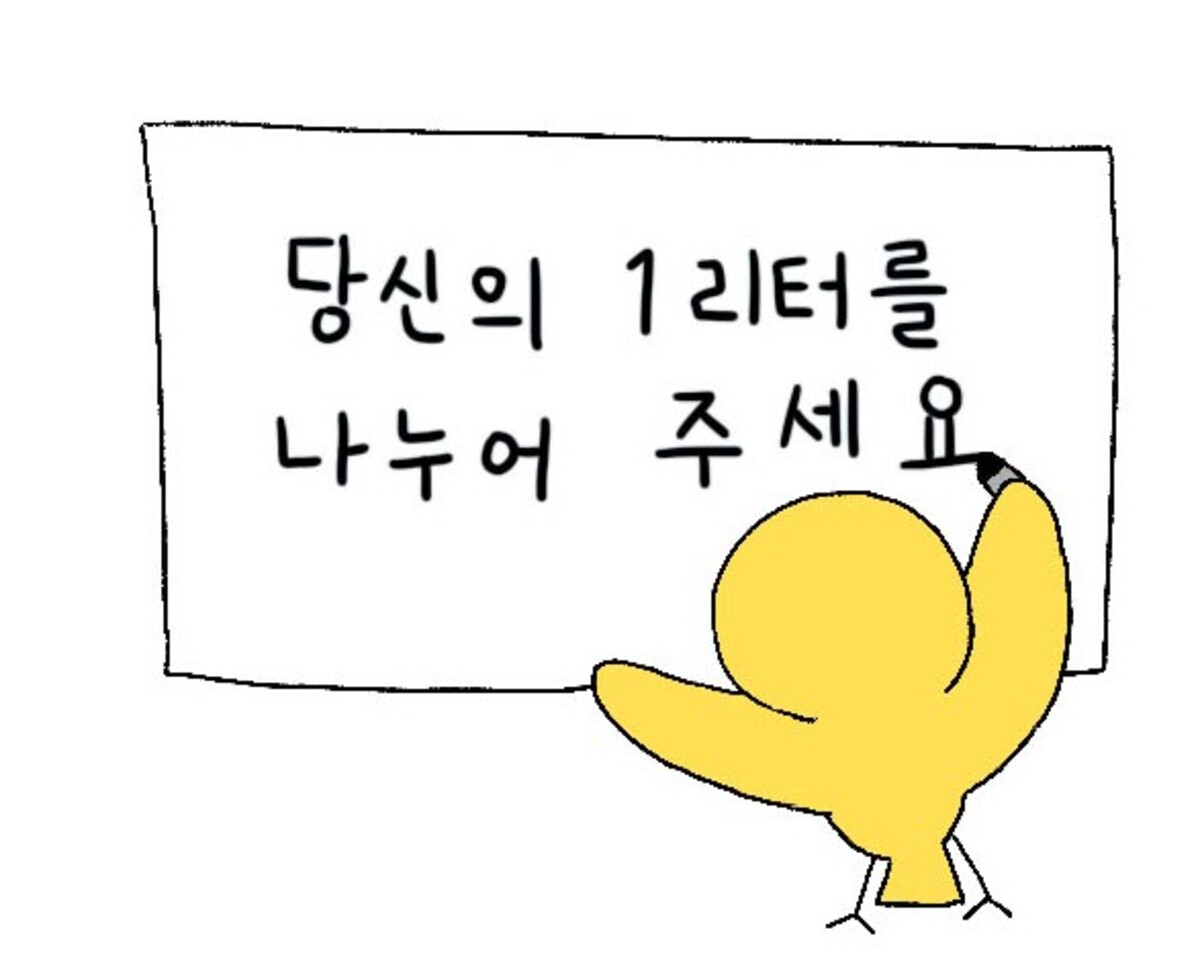 당신의 1리터를
나누어 주세요